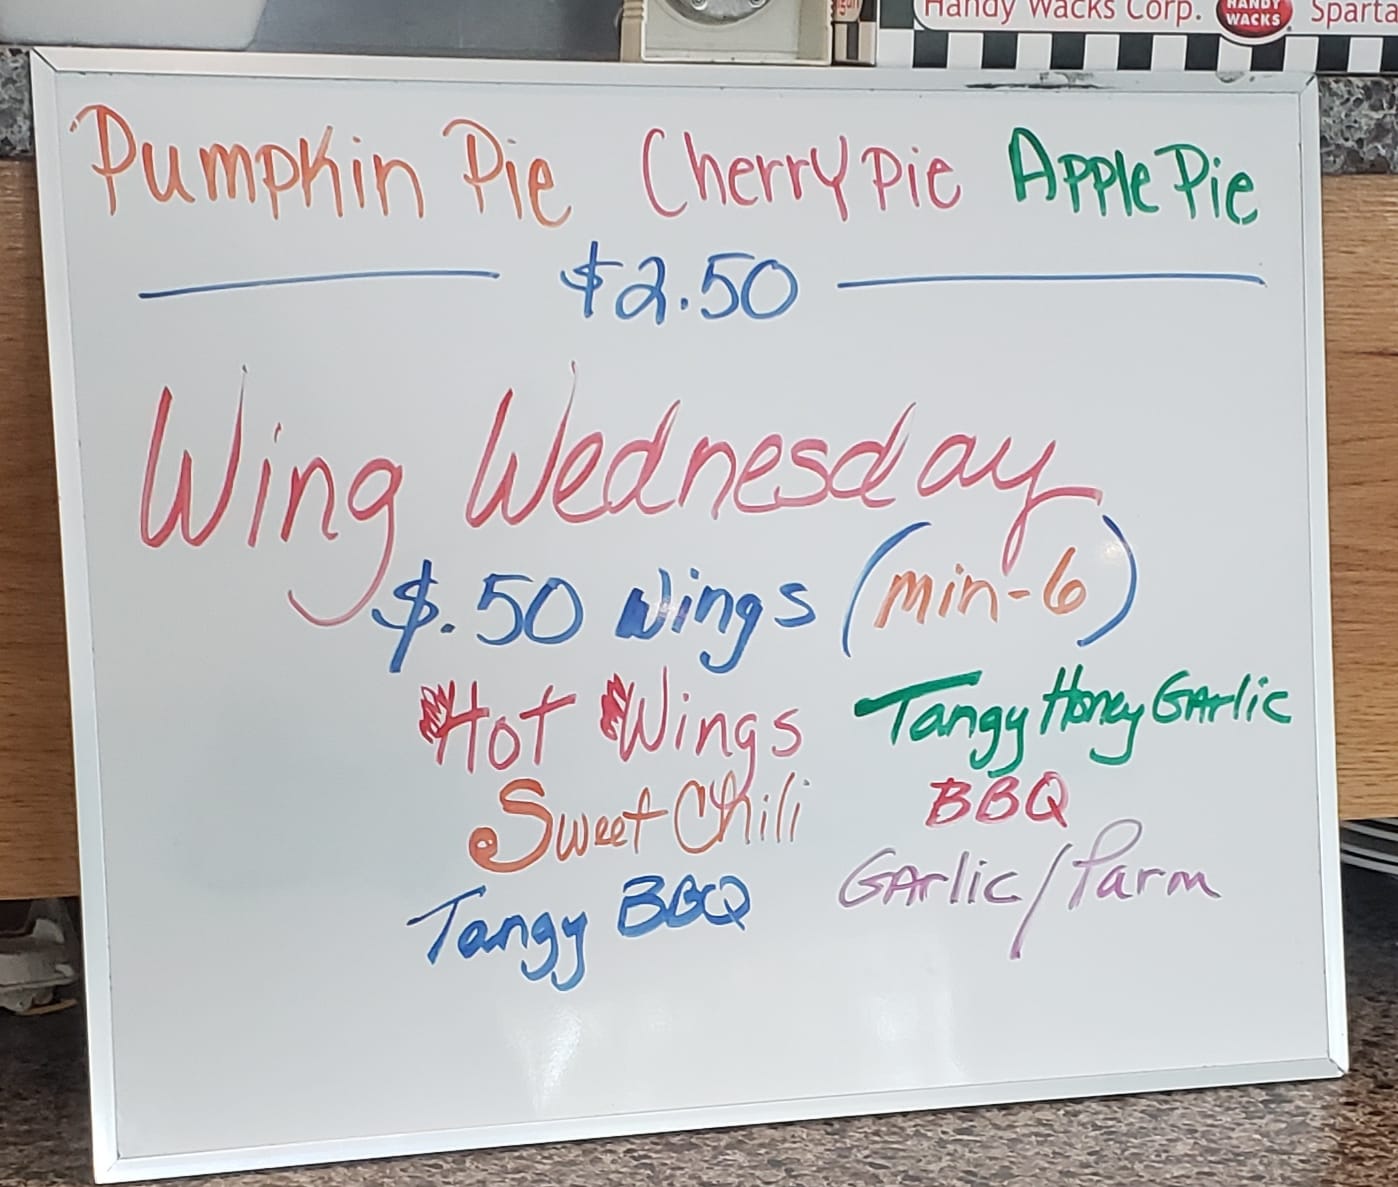 Handy Wacks Corp. HANDY WACKS Sparta
Pumpkin Pie Cherry Pie Apple Pie
$2.50
Wing Wednesday
$.50 Wings (min-6)
Hot Wings Tangy Honey Garlic
Sweet Chili BBQ
Tangy BBQ Garlic/Parm